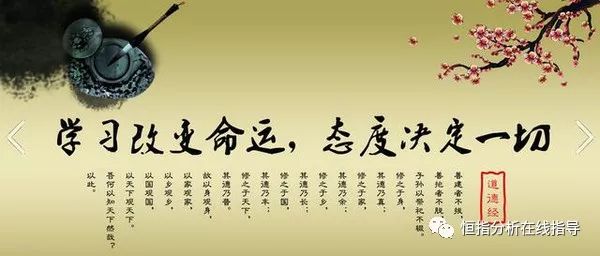 学习改变命运，态度决定一切
道德经
善建者不拔，
善抱者不脱，
子孙以祭祀不辍。
修之于身，
其德乃真；
修之于家，
其德乃余；
修之于乡，
其德乃长；
修之于国，
其德乃丰；
修之于天下，
其德乃普。
故以身观身，
以家观家，
以乡观乡，
以国观国，
以天下观天下。
吾何以知天下然哉？
以此。
恒指分析在线指导